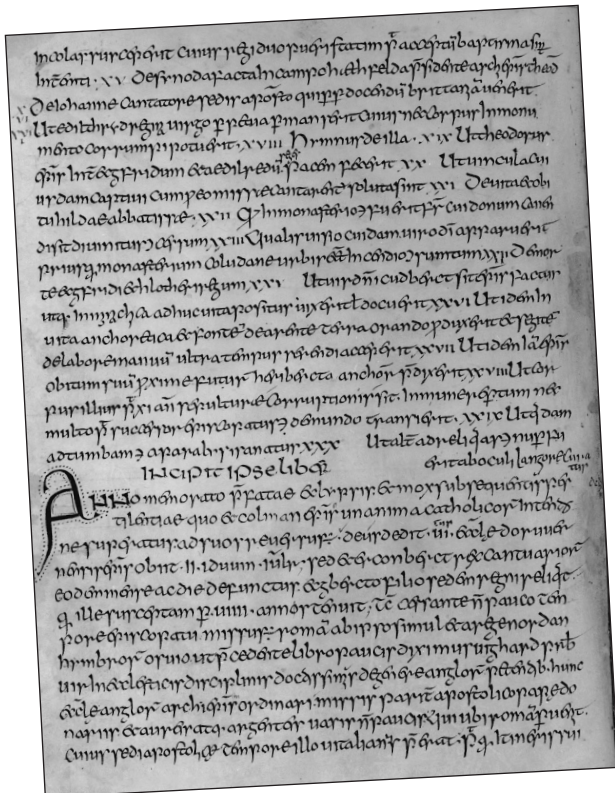 incolas susceperit cuius regi duo pueri statim p̄ acceptū baptisma sīt
intēti · xv De synoda facta in campo hæthfelda p̄sidente archiep̄ theod̄
De Iohanne cantatore sedis aposto qui ꝓp̄ docendū brittaniā uenerit ·
Ut edilthryd regin̄ uirgo ꝑpetua ꝑmanserit cuius nec corpus in monu
mento corrumpi potuerit · xviii Hymnus de illa · xix Ut theodorus
ep̄s int̄ ecgfridum & aedilredū reg̃ pacem fecerit xx Ut uincula cui
usdam captiui cum p̱ eo missae cantarent̄ soluta sint xxi De uita & obi
tu hildae abbatissae · xxii Q̄ in monasterio ꝫ fuerit fr̄ cui donum canen
di sit diuinitus ↄcessum xxiii Qualis uisio cuidam uiro dī apparuerit
priusq̄ monasterium coludane urbis eēt incendio ↄsumtum De mor
te ecgfridi & hlotheri regum xxv Ut uir dn̄i cudberct sit ep̄s factus
utq· in monachica adhuc uita positus uixerit ł docuerit xxvi Ut idem in
uita anchoretica & fontē de arente terra orando ꝓduxerit & segetē
de labore manuū ultra tempus serendi acceperit xxvii Ut idem iā ep̄s
obitum suū proxime futur̄ heriberc̄to anchor̄ p̄dixerit xxviii Ut cor
pus illius p̄ xi an̄ sepulturae corruptionis sit inmune reptum nec
multo p̄ successor episcopatus ꝫ de mundo transierit · xxix Ut q̄dam
ad tumbam ꝫ a paralisi sanatur xxx Ut alt̄ ad reliq̄as ꝫ nup̄ fu
INCIPIT IPSE LIBER erit ab oculi langore cura
tus
ANNO memorato p̄fatae eclypsis & mox subsequentis pes
tilentiae quo & colman ep̄s unanima catholicor̄ intentio
ne superatus ad suos reuersus ÷ deusdedit · ui· eccle dorouer
nensis ep̄s obiit · ii · iduum · iūliar̄ sed & erconberct rex cantuarior̄
eodem mense ac die defunctus ecgbercto filio sedem regni reliq̄t ·
q̄ ille susceptam ꝑ uiiii · annos tenuit · tc̄ cessante n̄ pauco tem
pore episcopatu missus ÷ romā ab ipso simul & a rege nordan
hymbror̄ osuio ut p̄cedente libro paucis diximus uighard pr̄b
uir in ecclesiasticis disciplinis docdissimus de genere anglor̄ petentib· hunc
eccle anglor̄ archiep̄m ordinari · missis parit̄ apostolico papae do
nariis & aureis atq· argenteis uasis n̄ paucis qui ubi romā ꝑuenit ·
cuius sedi apostolicae tempore illo uitalianus p̄erat · p̄ q̄ itineris sui